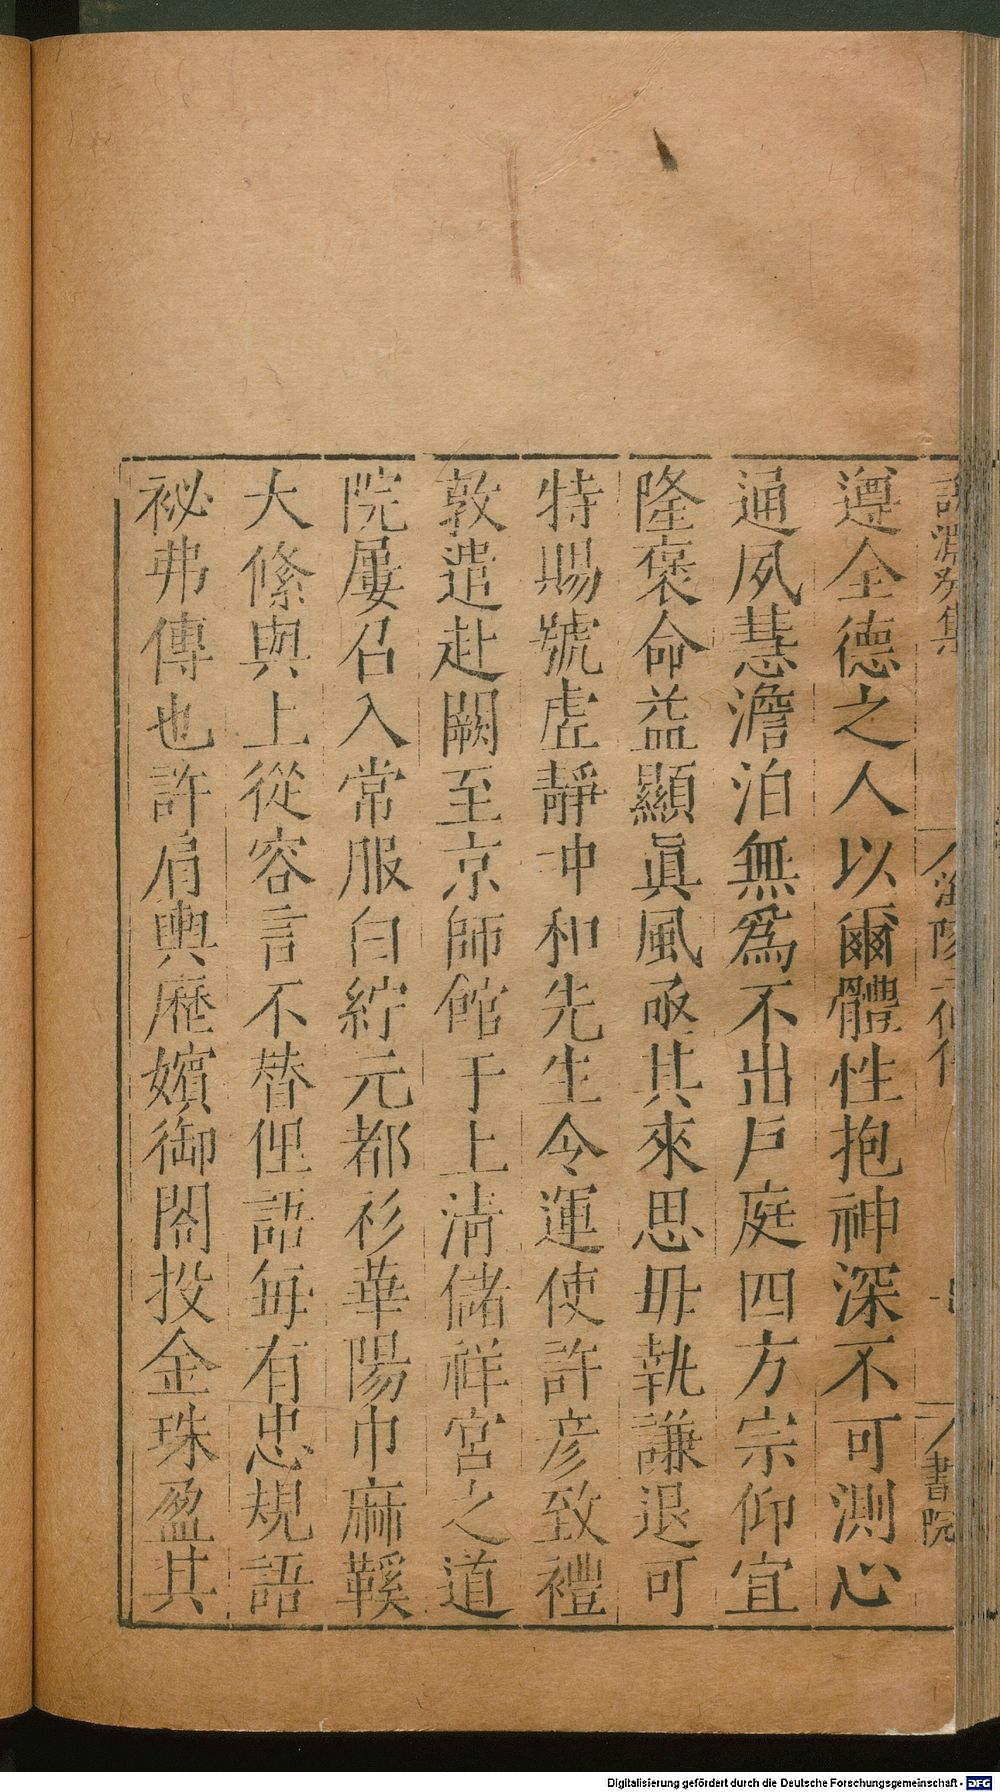 說淵癸集
海陵三仙傳
書院
遵全德之人以爾體性抱神深不可測心
通夙慧澹泊無爲不出戶庭四方宗仰宜
隆褒命益顯眞風亟其來思毋執謙退可
特賜號虛靜冲和先生令運使許彦致禮
敦遣赴闕至京師館于上淸儲祥宮之道
院屢召入常服白紵元都衫華陽巾麻鞵
大絛與上從容言不替俚語每有忠規語
祕弗傳也許肩輿歷嬪御閤投金珠盈其
Digitalisierung gefördert durch die Deutsche Forschungsgemeinschaft - DFG